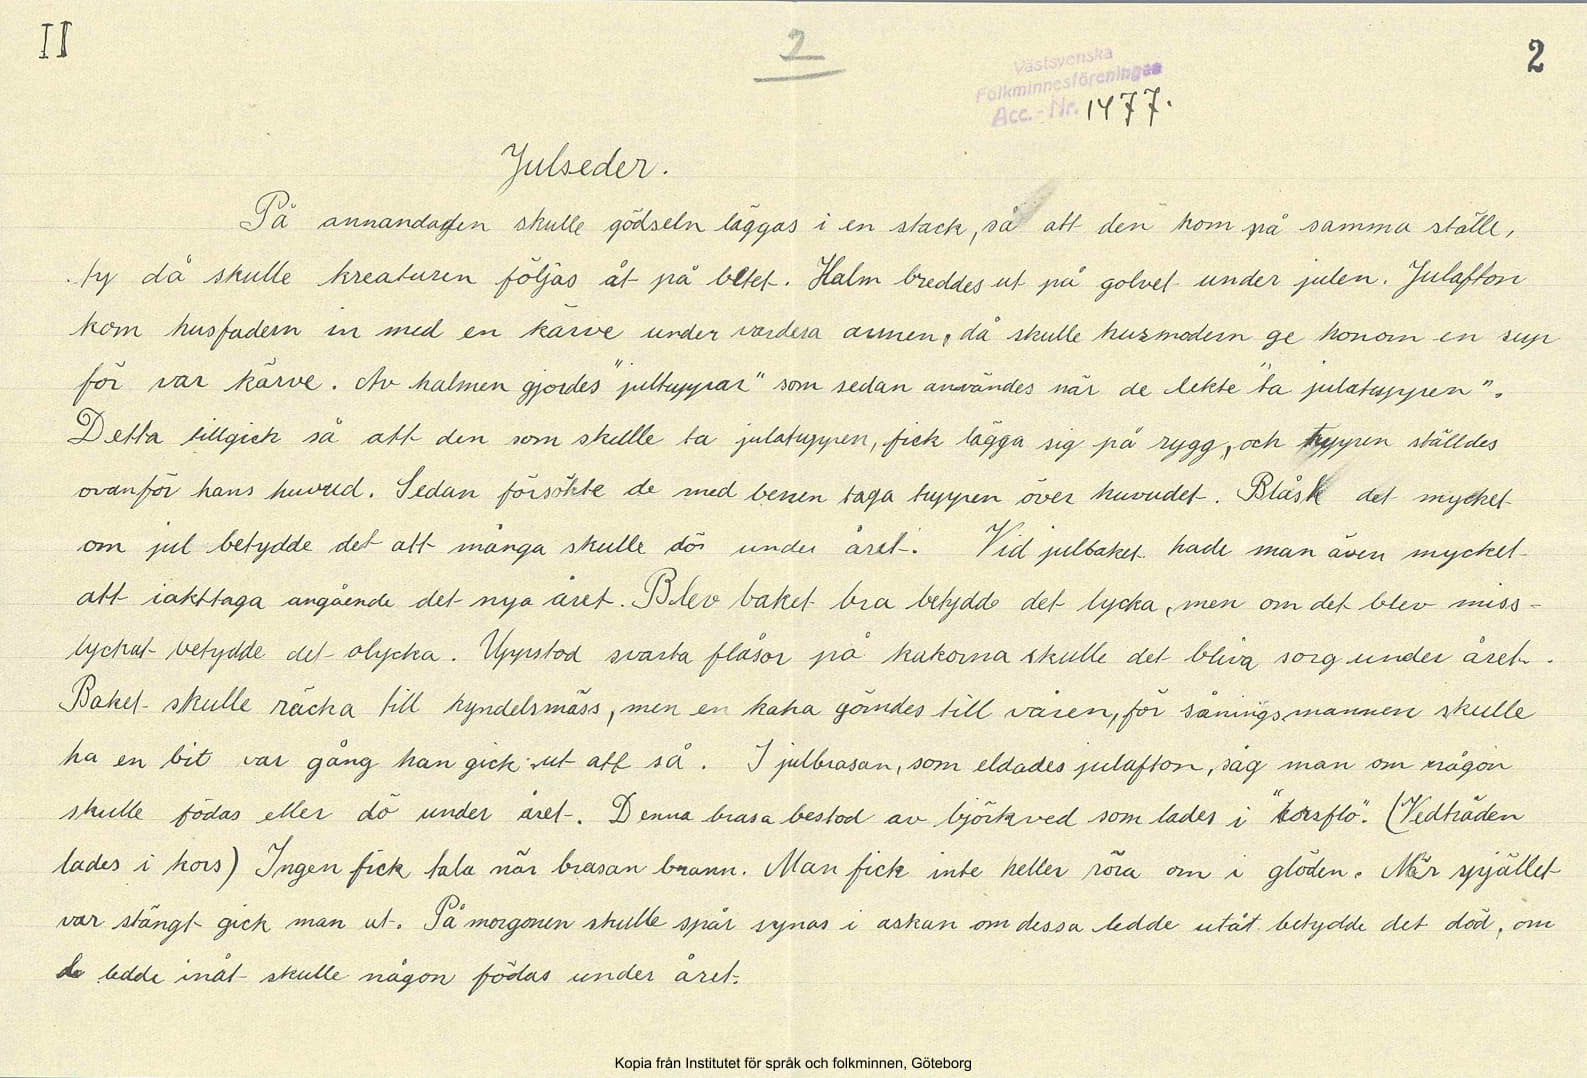 II
2
2
Västsvenska
Folkminnesföreningen
Acc.-Nr. 1477.
Julseder.
På annandagen skulle gödseln läggas i en stack, så att den kom på samma ställe,
ty då skulle kreaturen följas åt på betet. Halm breddes ut på golvet under julen. Julafton
kom husfadern in med en kärve under vardera armen, då skulle husmodern ge honom en sup
för var kärve. Av halmen gjordes "jultuppar" som sedan användes när de lekte "ta julatuppen".
Detta tillgick så att den som skulle ta julatuppen, fick lägga sig på rygg, och tuppen ställdes
ovanför hans huvud. Sedan försökte de med benen taga tuppen över huvudet. Blåste det mycket
om jul betydde det att många skulle dö under året. Vid julbaket hade man även mycket
att iakttaga angående det nya året. Blev baket bra betydde det lycka, men om det blev miss-
lyckat betydde det olycka. Uppstod svarta flåsor på kakorna skulle det bliva sorg under året.
Baket skulle räcka till kyndelsmäss, men en kaka gömdes till våren, för såningsmannen skulle
ha en bit var gång han gick ut att så. I julbrasan, som eldades julafton, såg man om någon
skulle födas eller dö under året. Denna brasa bestod av björkved som lades i "korsflö". (Vedträden
lades i kors) Ingen fick tala när brasan brann. Man fick inte heller röra om i glöden. När spjället
var stängt gick man ut. På morgonen skulle spår synas i askan om dessa ledde utåt betydde det död, om
de ledde inåt skulle någon födas under året.
Kopia från Institutet för språk och folkminnen, Göteborg